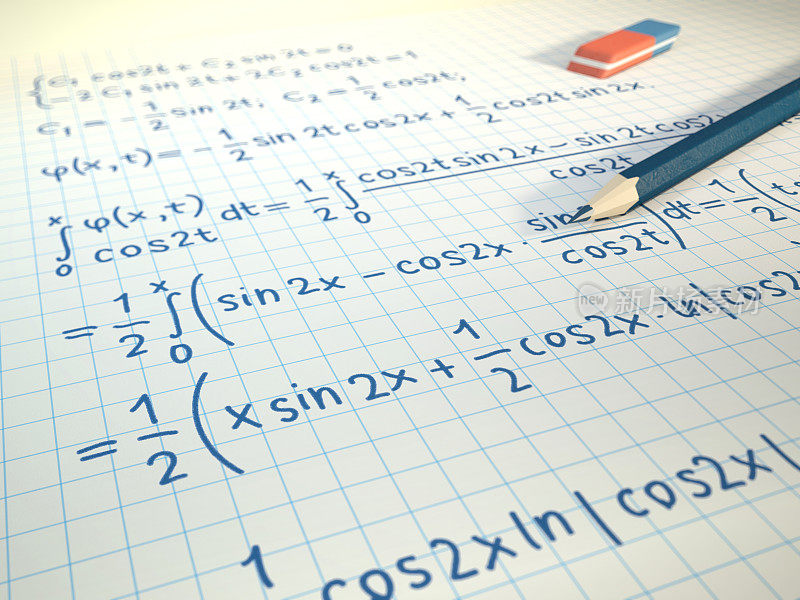 { C₁ cos2t + C₂ sin 2t = 0
-2C₁ sin 2t + 2C₂ cos2t = 1
C₁ = -1/2 sin 2t; C₂ = 1/2 cos2t;
φ(x,t) = -1/2 sin 2t cos2x + 1/2 cos2t sin 2x.
∫₀ˣ φ(x,t)/cos2t dt = 1/2 ∫₀ˣ (cos2t sin 2x - sin 2t cos2x)/cos2t
= 1/2 ∫₀ˣ (sin 2x - cos2x · sin/cos2t) dt = 1/2 (
= 1/2 (x sin 2x + 1/2 cos2x · ln|cos2
1 cos2x ln|cos2x|
new 新片场素材